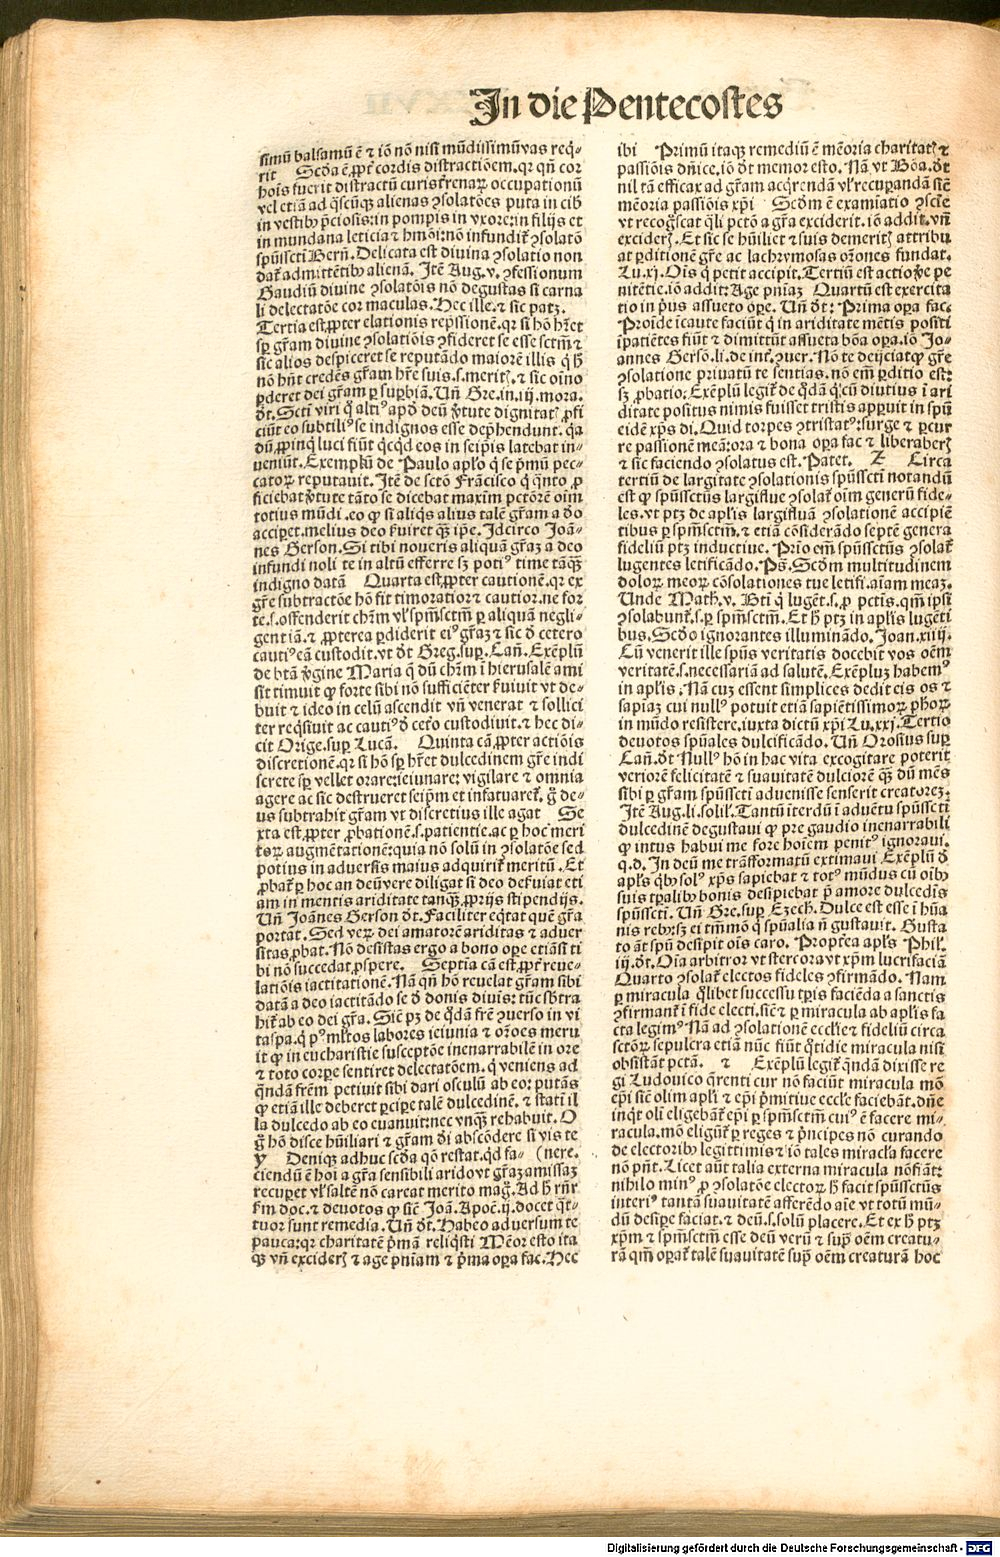 In die Pentecostes
simū balsamū ē ⁊ iō nō nisi mūdissimū vas reqͥ⸗
rit Scḋa ē ꝓpt̄ cordis distractiōem.qꝛ qn̄ cor
hoīs fuerit distractū curis t̄renaꝝ occupationū
vel etiā ad qͥscūqꝫ alienas ꝯsolatōes puta in cib
in vestibꝰ p̄ciosis: in pompis in vxore: in filijs et
in mundana leticia ⁊ hmōi: nō infundit̄ ꝯsolatō
spūsscti Bern̄. Delicata est diuina ꝯsolatio non
dat̄ admittētibꝰ alienā. Itē Aug.v.ꝯfessionum
Gaudiū diuine ꝯsolatōis nō degustas si carna
li delectatōe cor maculas. Hec ille.⁊ sic patꝫ.
Tertia est ꝓpter elationis rep̄ssionē.qꝛ si hō hr̄et
sꝑ gr̄am diuine ꝯsolatiōis ꝯfideret se esse sctm̄ ⁊
sic alios despiceret se reputādo maiorē illis qͥ h̄
nō hn̄t credēs gr̄am hr̄e suis.s.meritꝭ.⁊ sic oīno
ꝑderet dei gr̄am ꝑ suꝑbiā. Vn̄ Gre.in.iij.mora.
dt̄. Scti viri qͥ altiꝰ apḋ deū v̄tute dignitatꝭ ꝓfi
ciūt eo subtiliꝰ se indignos esse dep̄hendunt.qa
dū ꝓpinqͥ luci fiūt qͥcqͥd eos in seip̄is latebat in⸗
ueniūt. Exemplū de Paulo apl̄o qͥ se p̄mū pec⸗
catoꝝ reputauit. Itē de sctō Frācisco qͥ qͣnto ꝓ
ficiebat v̄tute tāto se dicebat maxim̄ pctōrē oim̄
totius mūdi.eo ꝙ si aliqͥs alius talē gr̄am a ḋo
acciꝑet.melius deo ẜuiret qͣꝫ ip̄e. Idcirco Joā⸗
nes Gerson. Si tibi noueris aliquā gr̄aꝫ a deo
infundi noli te in altū efferre sꝫ potiꝰ time tāqͣꝫ
indigno datā Quarta est ꝓpter cautionē.qꝛ ex
gr̄e subtractōe hō fit timoratior ⁊ cautior.ne for
te.s.offenderit chr̄m vl̓ spm̄sctm̄ ꝑ aliquā negli⸗
gentiā.⁊ ꝓpterea ꝑdiderit eiꝰ gr̄aꝫ ⁊ sic ḋ cetero
cautiꝰ eā custodit.vt dt̄ Greg.suꝑ. Can̄. Exēplū
de btā v̓gine Maria qͥ dū chr̄m ī hierusalē ami
sit timuit ꝙ forte sibi nō sufficiēter ẜuiuit vt de⸗
buit ⁊ ideo in celū ascendit vn̄ venerat ⁊ sollici
ter reqͥsiuit ac cautiꝰ ḋ cet̓o custodiuit.⁊ hec di⸗
cit Orige.suꝑ Lucā. Quinta cā ꝓpter actiōis
discretionē.qꝛ si hō sꝑ hr̄et dulcedinem gr̄e indi
screte sꝑ vellet orare: ieiunare: vigilare ⁊ omnia
agere ac sic destrueret seip̄m et infatuaret̄.g̊ de⸗
us subtrahit gr̄am vt discretius ille agat Se
xta est ꝓpter ꝓbationē.s.patientie.ac ꝑ hoc meri
toꝝ augmētationē: quia nō solū in ꝯsolatōe sed
potius in aduersis maius adquirit̄ meritū. Et
ꝓbat̄ ꝑ hoc an deū vere diligat si deo deẜuiat eti
am in mentis ariditate tanqͣꝫ ꝓprijs stipendijs.
Vn̄ Joānes Gerson dt̄. Faciliter eqͥtat quē gr̄a
portāt. Sed veꝝ dei amatorē ariditas ⁊ aduer
sitas ꝓbat. Nō desistas ergo a bono oꝑe etiāsi ti
bi nō succedat ꝓspere. Septīa cā est ꝓpt̄ reue⸗
lationis iactitationē. Nā qn̄ hō reuelat gr̄am sibi
datā a deo iactitādo se ḋ donis diuis: tūc sb̄tra
hit̄ ab eo dei gr̄a. Sic̄ pꝫ de qͣdā fr̄e ꝯuerso in vi
taspa.qͥ pꝰ ml̄tos labores ieiunia ⁊ or̄oes meru
it ꝙ in eucharistie susceptōe inenarrabilē in ore
⁊ toto corpe sentiret delectatōem.qͥ veniens ad
qͣndā fr̄em petiuit sibi dari osculū ab eo: putās
ꝙ etiā ille deberet ꝑciꝑe talē dulcedinē.⁊ statī il
la dulcedo ab eo euanuit: nec vnqͣꝫ rehabuit. O
g̊ hō disce hūiliari ⁊ gr̄am dī abscōdere si vis te
y Deniqꝫ adhuc scḋa qō restat.qḋ fa⸗ (nere.
ciendū ē hoī a gr̄a sensibili arido vt gr̄aꝫ amissaꝫ
recuꝑet vl̓ saltē nō careat merito mag̊. Ad h̄ rn̄r
ẜm doc.⁊ deuotos ꝙ sic̄ Joā. Apoc̄.ij.docet qͣt⸗
tuor sunt remedia. Vn̄ dt̄. Habeo aduersum te
pauca: qꝛ charitatē p̄mā reliqͥsti Mēor esto ita
qꝫ vn̄ excideris ⁊ age pn̄iam ⁊ p̄ma oꝑa fac. Hec
ibi Primū itaqꝫ remediū ē mēoria charitatꝭ ⁊
passiōis dn̄ice.iō dt̄ memor esto. Nā vt Bōa.dt̄
nil tā efficax ad gr̄am acqͥrendā vl̓ recuꝑandā sic̄
mēoria passiōis xp̄i Scḋm ē examiatio ꝯscīe
vt recogͦscat qͣli pctō a gr̄a exciderit.iō addit.vn̄
exciderꝭ. Et sic se hūiliet ⁊ suis demeritꝭ attribu
at ꝑditionē gr̄e ac lachrymosas or̄ones fundat.
Lu.xj. Oīs qͥ petit accipit. Tertiū est actio v̄e pe
nitētie.iō addit: Age pn̄iaꝫ Quartū est exercita
tio in pͥus assueto oꝑe. Vn̄ dt̄: Prima oꝑa fac.
Proīde īcaute faciūt qͥ in ariditate mētis positi
īpatiētes fiūt ⁊ dimittūt assueta bōa oꝑa.iō Jo⸗
annes Gersō.li.de int̓.ꝯuer. Nō te deijciat ꝙ gr̄e
ꝯsolatione priuatū te sentias.nō em̄ ꝑditio est:
sꝫ ꝓbatio: Exēplū legit̄ de qͦdā qͥ cū diutius ī ari
ditate positus nimis fuisset tristis apꝑuit in spū
eidē xp̄s di. Quid torpes ꝯtristatꝰ: surge ⁊ ꝑcur
re passionē meā: ora ⁊ bona oꝑa fac ⁊ liberaberꝭ
⁊ sic faciendo ꝯsolatus est. Patet. Z Circa
tertiū de largitate ꝯsolationis spūssct̄i notandū
est ꝙ spūssctūs largiflue ꝯsolat̄ oim̄ generū fide⸗
les.vt ptꝫ de apl̄is largifluā ꝯsolationē accipiē
tibus ꝑ spm̄sctm̄.⁊ etiā cōsiderādo septē genera
fideliū ptꝫ inductiue. Prīo em̄ spūssctūs ꝯsolat̄
lugentes letificādo. Ps̄. Scḋm multitudinem
doloꝝ meoꝝ cōsolationes tue letifi.aīam meaꝫ.
Unde Math.v. Bt̄i qͥ lugēt.s.ꝓ pctīs.qm̄ ipsi
ꝯsolabunt̄.s.ꝑ spm̄sctm̄. Et h̄ ptꝫ in apl̄is lugēti
bus. Scḋo ignorantes illuminādo. Joan.xiiij.
Cū venerit ille spūs veritatis docebit vos oēm
veritatē.s.necessariā ad salutē. Exēpluꝫ habemꝰ
in apl̄is. Nā cuꝫ essent simplices dedit eis os ⁊
sapiaꝫ cui nullꝰ potuit etiā sapiētissimoꝝ phōꝝ
in mūdo resistere.iuxta dictū xp̄i Lu.xxj. Tertio
deuotos spūales dulcificādo. Un̄ Orosius suꝑ
Can̄.dt̄ Nullꝰ hō in hac vita excogitare poterit
veriorē felicitatē ⁊ suauitatē dulciorē qͣꝫ dū mēs
sibi ꝑ gr̄am spūssct̄i aduenisse senserit creatoreꝫ.
Itē Aug.li.solil. Tantū īterdū ī aduētu spūssct̄i
dulcedinē degustaui ꝙ pre gaudio inenarrabili
ꝙ intus habui me fore hoīem penitꝰ ignoraui.
q.d. In deū me trāsformatū extimaui Exēplū ḋ
apl̄is qͥbꝰ solꝰ xp̄s sapiebat ⁊ totꝰ mūdus cū oībꝰ
suis tꝑalibꝰ bonis desipiebat p̄ amore dulcedīs
spūssct̄i. Un̄ Gre.suꝑ Ezech. Dulce est esse ī hūa
nis rebꝰ: sꝫ ei tm̄ mō qͥ spūalia nō gustauit. Gusta
to āt spū desipit oīs caro. Propt̓ea apl̄s Phil̓.
iij.dt̄. Oīa arbitror vt stercora vt xp̄m lucrifaciā
Quarto ꝯsolat̄ electos fideles ꝯfirmādo. Nam
ꝑ miracula qͣlibet successu tꝑis faciēda a sanctis
ꝯfirmant̄ ī fide electi.sic̄ ⁊ ꝑ miracula ab apl̄is fa
cta legimꝰ Nā ad ꝯsolationē eccl̄ie ⁊ fideliū circa
sctōꝝ sepulcra etiā nūc fiūt qͦtidie miracula nisi
obsistāt pctā. ⁊ Exēplū legit̄ qͦndā dixisse re
gi Ludouico qͣrenti cur nō faciūt miracula mō
ep̄i sic̄ olim apl̄i ⁊ ep̄i p̄mitiue eccl̄e faciebāt.dn̄e
inqͥt olī eligebāt̄ ep̄i ꝑ spm̄sctm̄ cuiꝰ ē facere mi⸗
racula.mō eligūt̄ ꝑ reges ⁊ p̄ncipes nō curando
de electoribꝰ legittimis ⁊ iō tales miracl̓a facere
nō pn̄t. Licet aūt talia externa miracula nō fiāt:
nihilo minꝰ ꝓ ꝯsolatōe electoꝝ h̄ facit spūssctūs
interiꝰ tantā suauitatē afferēdo aīe vt totū mū⸗
dū desiꝑe faciat.⁊ deū.s.solū placere. Et ex h̄ ptꝫ
xp̄m ⁊ spm̄sctm̄ esse deū verū ⁊ suꝑ oēm creatu⸗
rā qm̄ oꝑat̄ talē suauitatē suꝑ oēm creaturā hoc
Digitalisierung gefördert durch die Deutsche Forschungsgemeinschaft - DFG